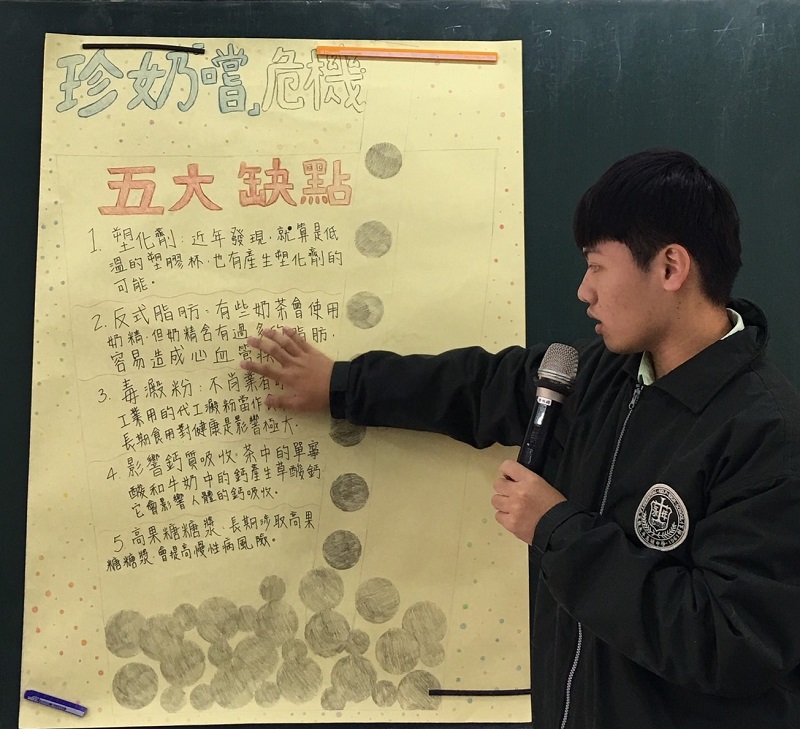 珍奶嚐危機
五大缺點
1. 塑化劑：近年發現，就算是低
溫的塑膠杯，也有產生塑化劑的
可能。
2. 反式脂肪：有些奶茶會使用
奶精，但奶精含有過多的脂肪，
容易造成心血管疾
3. 毒澱粉：不肖業者
工業用的代工澱粉當作
長期食用對健康是影響極大.
4. 影響鈣質吸收.茶中的單寧
酸和牛奶中的鈣產生草酸鈣
它會影響人體的鈣吸收.
5. 高果糖糖漿：長期涉取高果
糖糖漿，會提高慢性病風險。